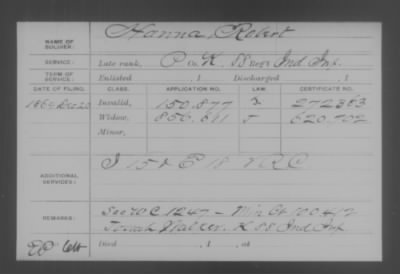 NAME OF SOLDIER: Hanna, Robert
SERVICE: Late rank, P Co. K, 88 Reg't Ind Inf.
TERM OF SERVICE: Enlisted , 1 Discharged , 1
DATE OF FILING. CLASS. APPLICATION NO. LAW. CERTIFICATE NO.
1869 Dec 20 Invalid, 150.877 272383
Widow, 620.702
Minor,
ADDITIONAL SERVICES: I 15 & E 18 VRC
REMARKS: See W C 1247 - Min Ct 100,412
K 88 Ind Inf.
Died , 1 , at